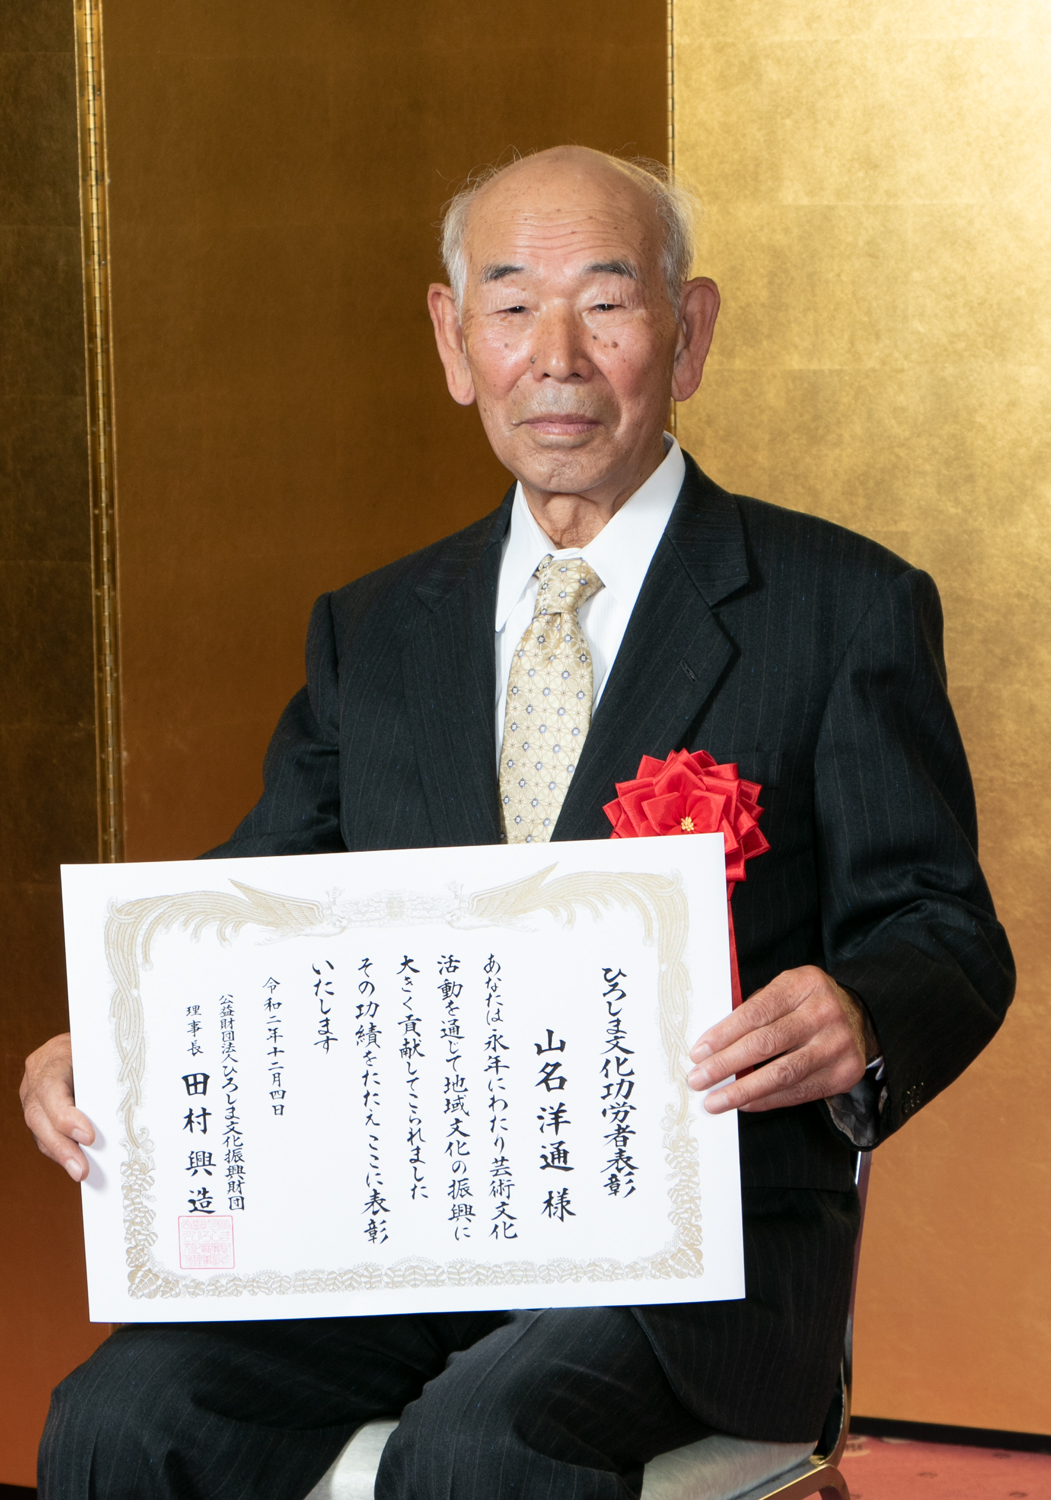 ひろしま文化功労者表彰
山名洋通 様
あなたは永年にわたり芸術文化
活動を通じて地域文化の振興に
大きく貢献してこられました
その功績をたたえここに表彰
いたします
令和二年十二月四日
公益財団法人ひろしま文化振興財団
理事長 田村興造